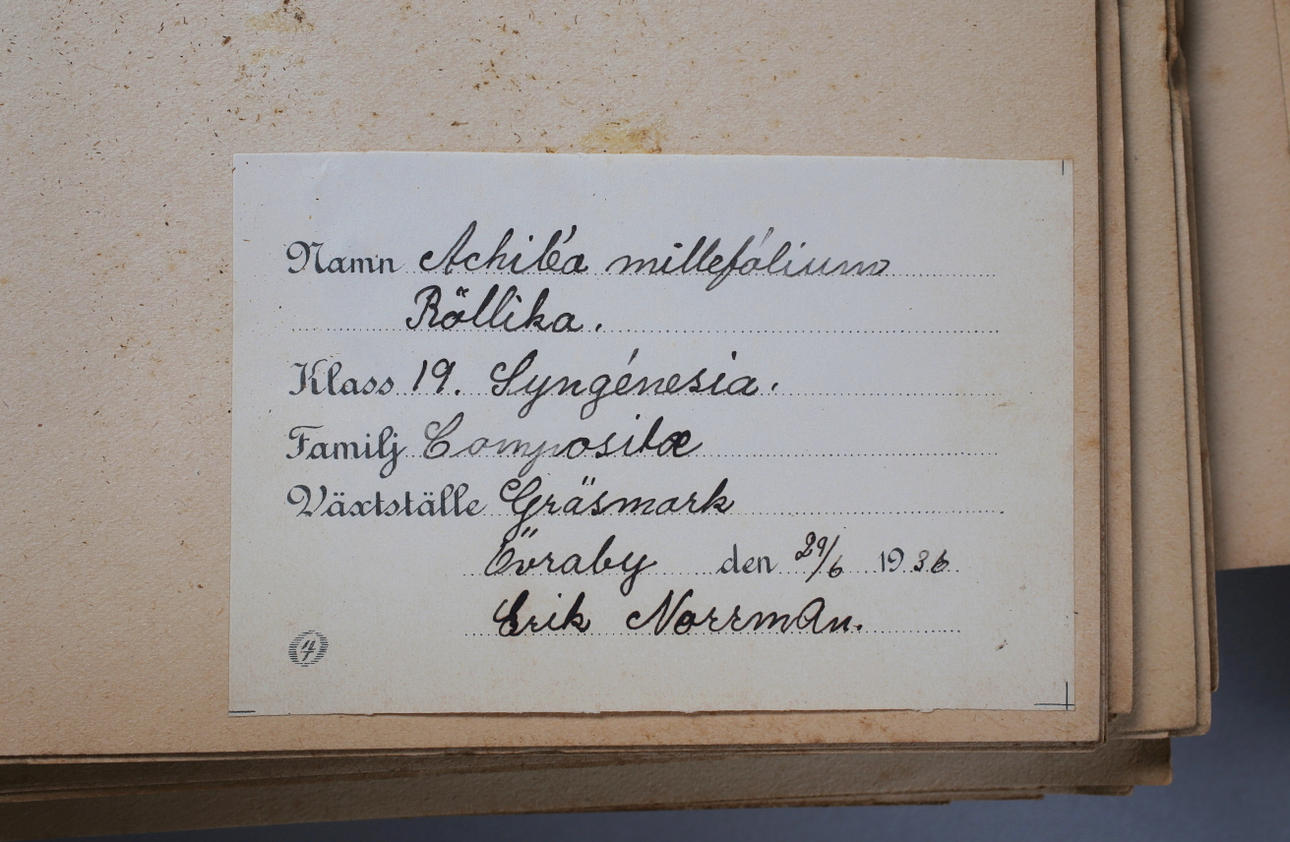 Namn Achiléa millefólium
Röllika.
Klass 19. Syngénesia.
Familj Compositæ
Växtställe Gräsmark
Övraby den 29/6 1936
Erik Norrman.